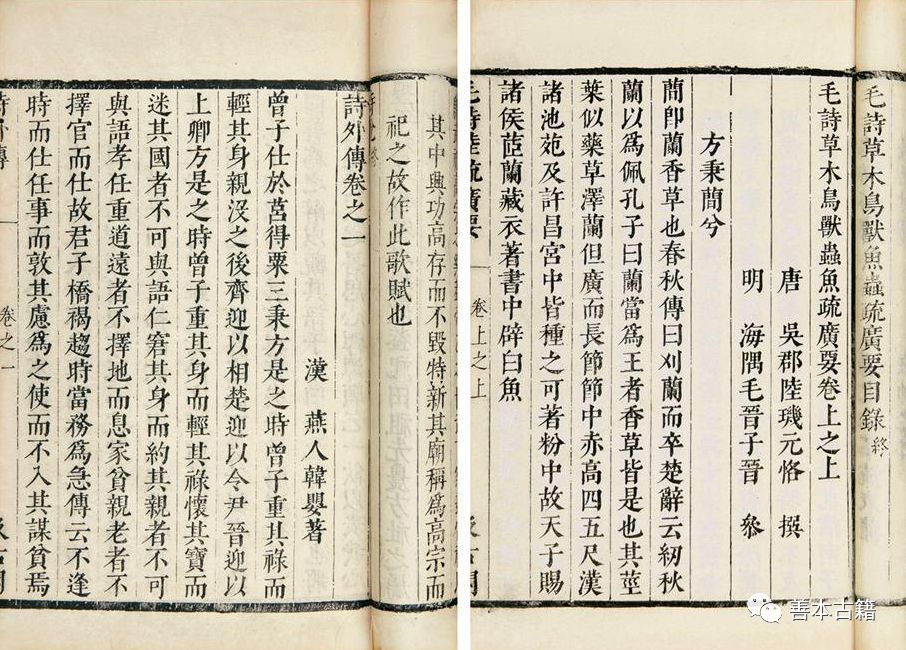 毛詩草木鳥獸魚蟲疏廣要目錄終
毛詩草木鳥獸蟲魚疏廣要卷上之上
唐 吳郡陸璣元恪 撰
明 海隅毛晉子晉 參
方秉蕑兮
蕑即蘭香草也春秋傳曰刈蘭而卒楚辭云紉秋
蘭以為佩孔子曰蘭當為王者香草皆是也其莖
葉似藥草澤蘭但廣而長節節中赤高四五尺漢
諸池苑及許昌宮中皆種之可著粉中故天子賜
諸侯茝蘭藏衣著書中辟白魚
毛詩陸疏廣要 卷上之上 汲古閣
其中興功高存而不毀特新其廟稱為高宗而
祀之故作此歌賦也
詩外傳卷之一
漢 燕人韓嬰著
曾子仕於莒得粟三秉方是之時曾子重其祿而
輕其身親沒之後齊迎以相楚迎以令尹晉迎以
上卿方是之時曾子重其身而輕其祿懷其寶而
迷其國者不可與語仁窘其身而約其親者不可
與語孝任重道遠者不擇地而息家貧親老者不
擇官而仕故君子橋褐趨時當務為急傳云不逢
時而仕任事而敦其慮為之使而不入其謀貧焉
詩外傳 卷之一 汲古閣
善本古籍